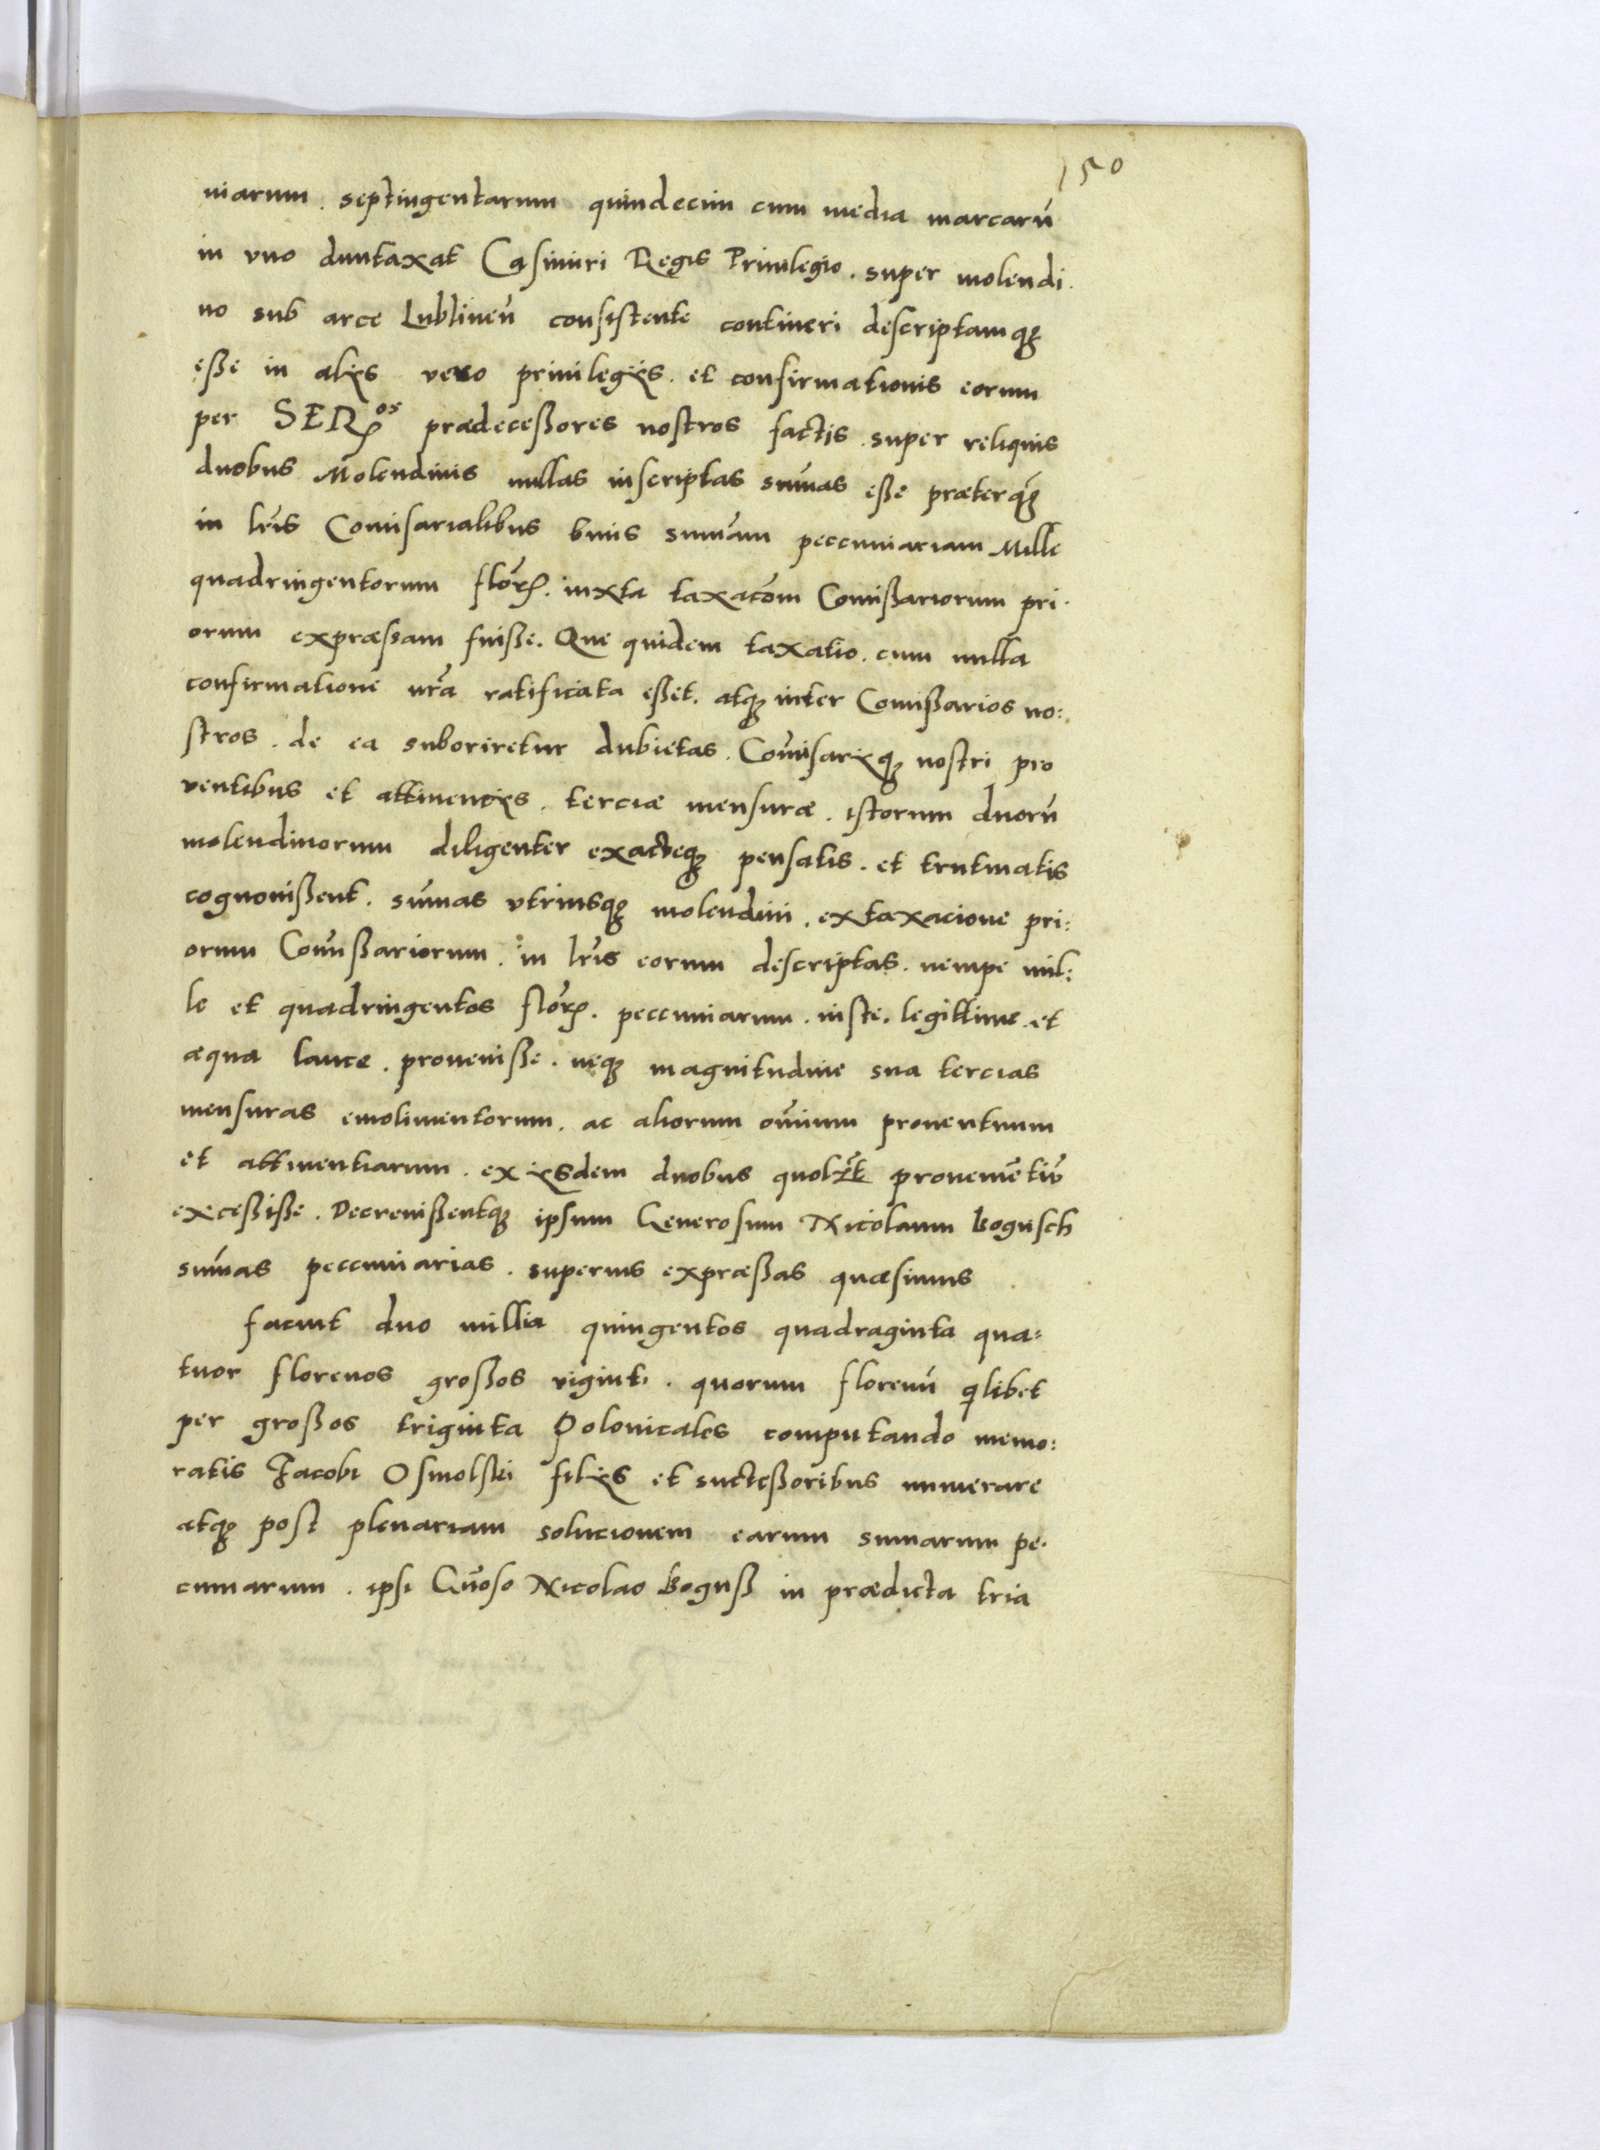 150
niarum . septingentarum quindecim cum media marcarū
in vno duntaxat Casimiri Regis Priuilegio . super molendi.
no sub arce Lublineñ consistente contineri descriptamq₃
eße in alijs vero priuilegijs . et confirmationis eorum
per SER^os prædeceßores nostros factis . super reliquis
duobus Molendinis nullas inscriptas sum̄as eße præterq̄₃
in lr̄is Comisarialibus binis sum̄am peccuniariam Mille
quadringentorum flor̄. iuxta taxacōm Comißariorum pri.
orum expræßam fuiße. Que quidem taxatio . cum nulla
confirmatione nr̄a ratificata eßet. atq₃ inter Comißarios no:
stros . de ea suboriretur dubietas . Com̄isarijq₃ nostri pro
uentibus et attinencijs . terciæ mensuræ . istorum duorū
molendinorum diligenter exacteq₃ pensatis . et trutinatis
cognouißent . sum̄as vtriusq₃ molendini . ex taxacione pri:
orum Com̄ißariorum . in lr̄is eorum descriptas . nempe mil:
le et quadringentos flor̄. peccuniarum . iuste . legittime . et
æqua lance . proueniße . neq₃ magnitudine sua tercias
mensuras emolimentorum . ac aliorum om̄ium prouentuum
et attinentiarum . ex ijsdem duobus prouenientiū
exceßiße . Decreuißentq₃ ipsum Generosum Nicolaum Bogusch
sum̄as peccuniarias . superius expræßas quæsimus
faciut duo millia quingentos quadraginta qua:
tuor florenos großos viginti . quorum florenū q̄libet
per großos triginta Polonicales computando memo:
ratis Jacobi Osmolski filijs et succeßoribus numerare
atq₃ post plenariam solucionem earum sumarum pe.
cuniarum . ipsi Gn̄oso Nicolao Boguß in prædicta tria